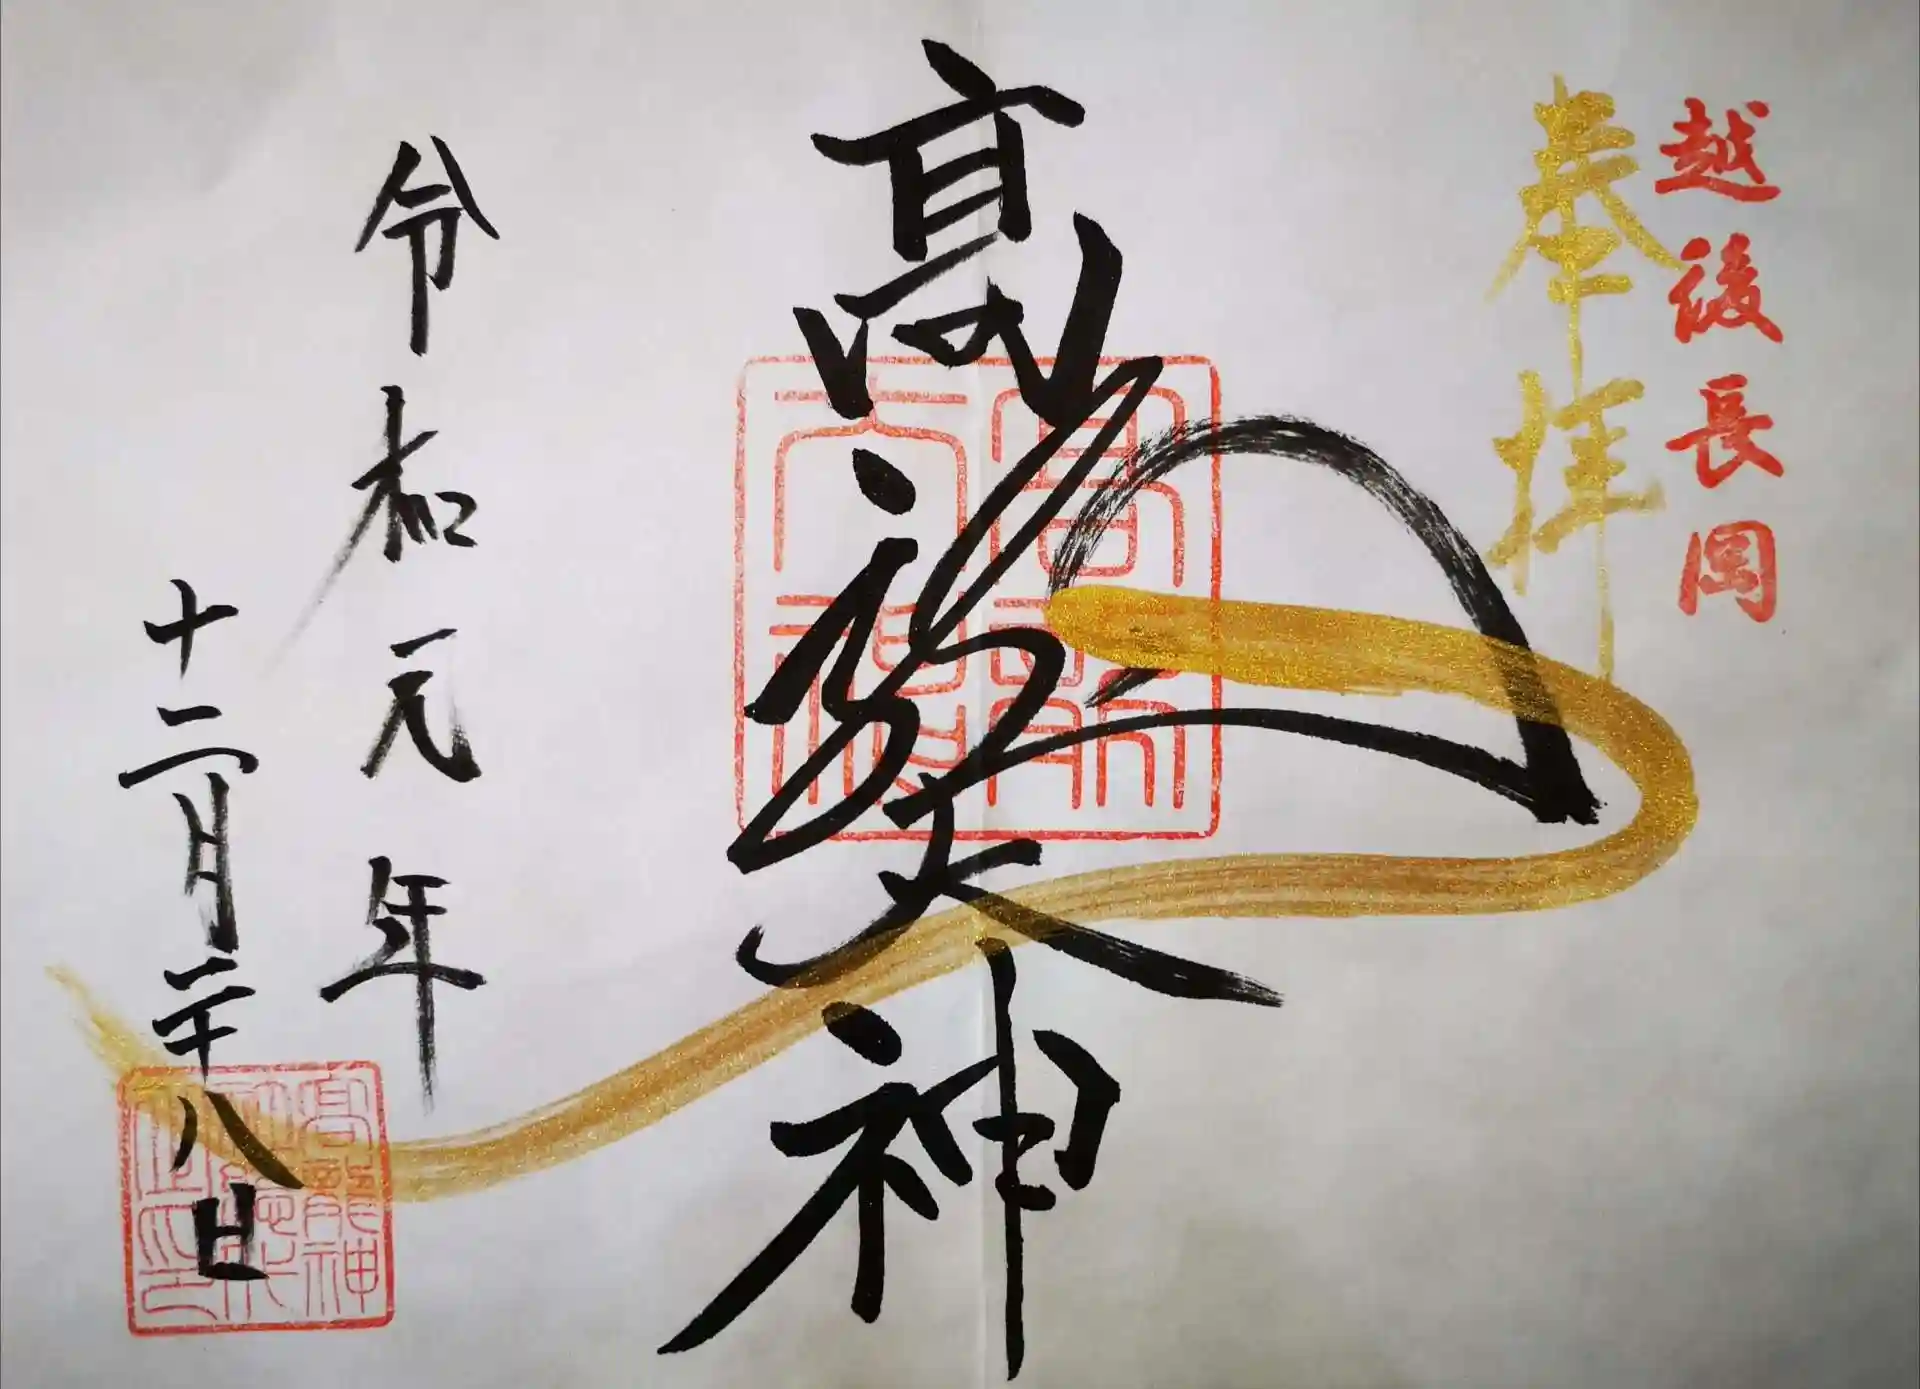 越後長岡
奉拝
高龍大神
高龍
大神
令和元年
十二月二十八日